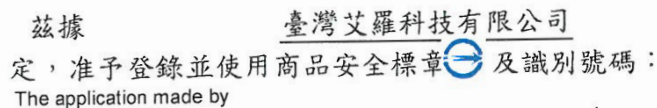 茲據 臺灣艾羅科技有限公司
定，准予登錄並使用商品安全標章 及識別號碼：
The application made by